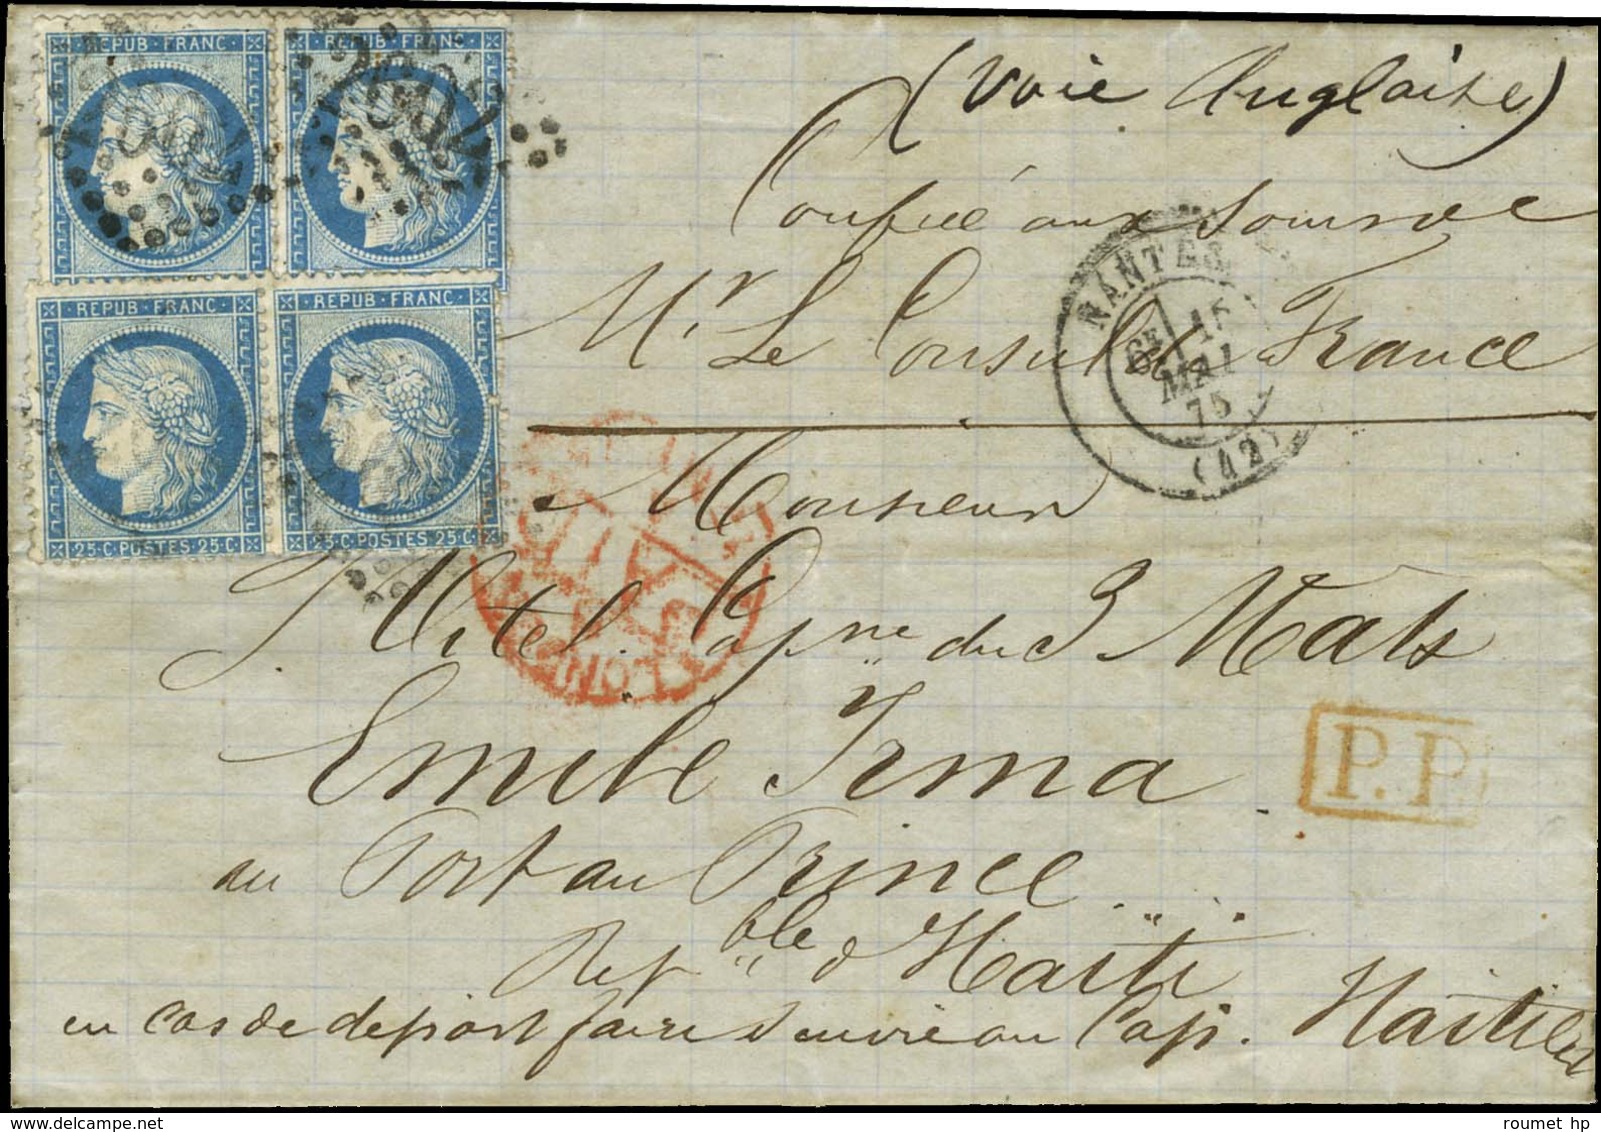 REPUB·FRANC
REPUB·FRANC
2602
(Voie Anglaise)
Confiée aux
Mr Le Consul de France
REPUB·FRANC·
REPUB·FRANC·
25·C·POSTES·25·C·
25·C·POSTES·25·C·
NANTES
6E
MAI
75
(42)
Monsieur
Vitel. Capne du 3 Mats
Emile Irma
P.P.
au Port au Prince
Repble d'Haïti
en cas de départ faire suivre au Cap. Haïtien
roumet hp